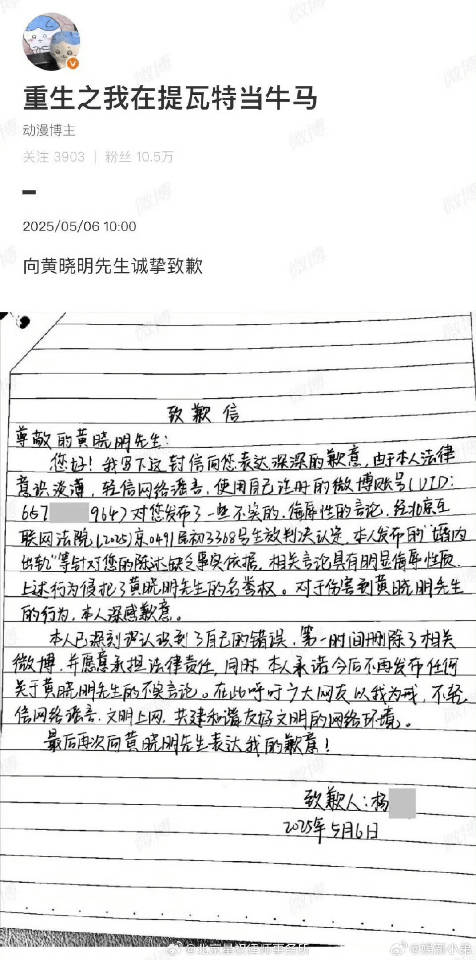 重生之我在提瓦特当牛马
动漫博主
关注 3903 | 粉丝 10.5万
2025/05/06 10:00
向黄晓明先生诚挚致歉
致歉信
尊敬的黄晓明先生：
您好！我写下这封信向您表达深深的歉意，由于本人法律
意识淡薄，轻信网络谣言，使用自己注册的微博账号（UID：
657 964）对您发布了一些不实的、侮辱性的言论，经北京互
联网法院（2025）京0491民初3368号生效判决认定，本人发布的“婚内
出轨”等针对您的陈述缺乏事实依据，相关言论具有明显侮辱性质，
上述行为侵犯了黄晓明先生的名誉权。对于伤害到黄晓明先生
的行为，本人深感歉意。
本人已深刻认识到了自己的错误，第一时间删除了相关
微博，并愿意承担法律责任，同时，本人承诺今后不再发布任何
关于黄晓明先生的不实言论。在此呼吁广大网友以我为戒，不轻
信网络谣言，文明上网，共建和谐友好文明的网络环境。
最后再次向黄晓明先生表达我的歉意！
致歉人：杨
2025年5月6日
@北京星权律师事务所
@娱部小弟